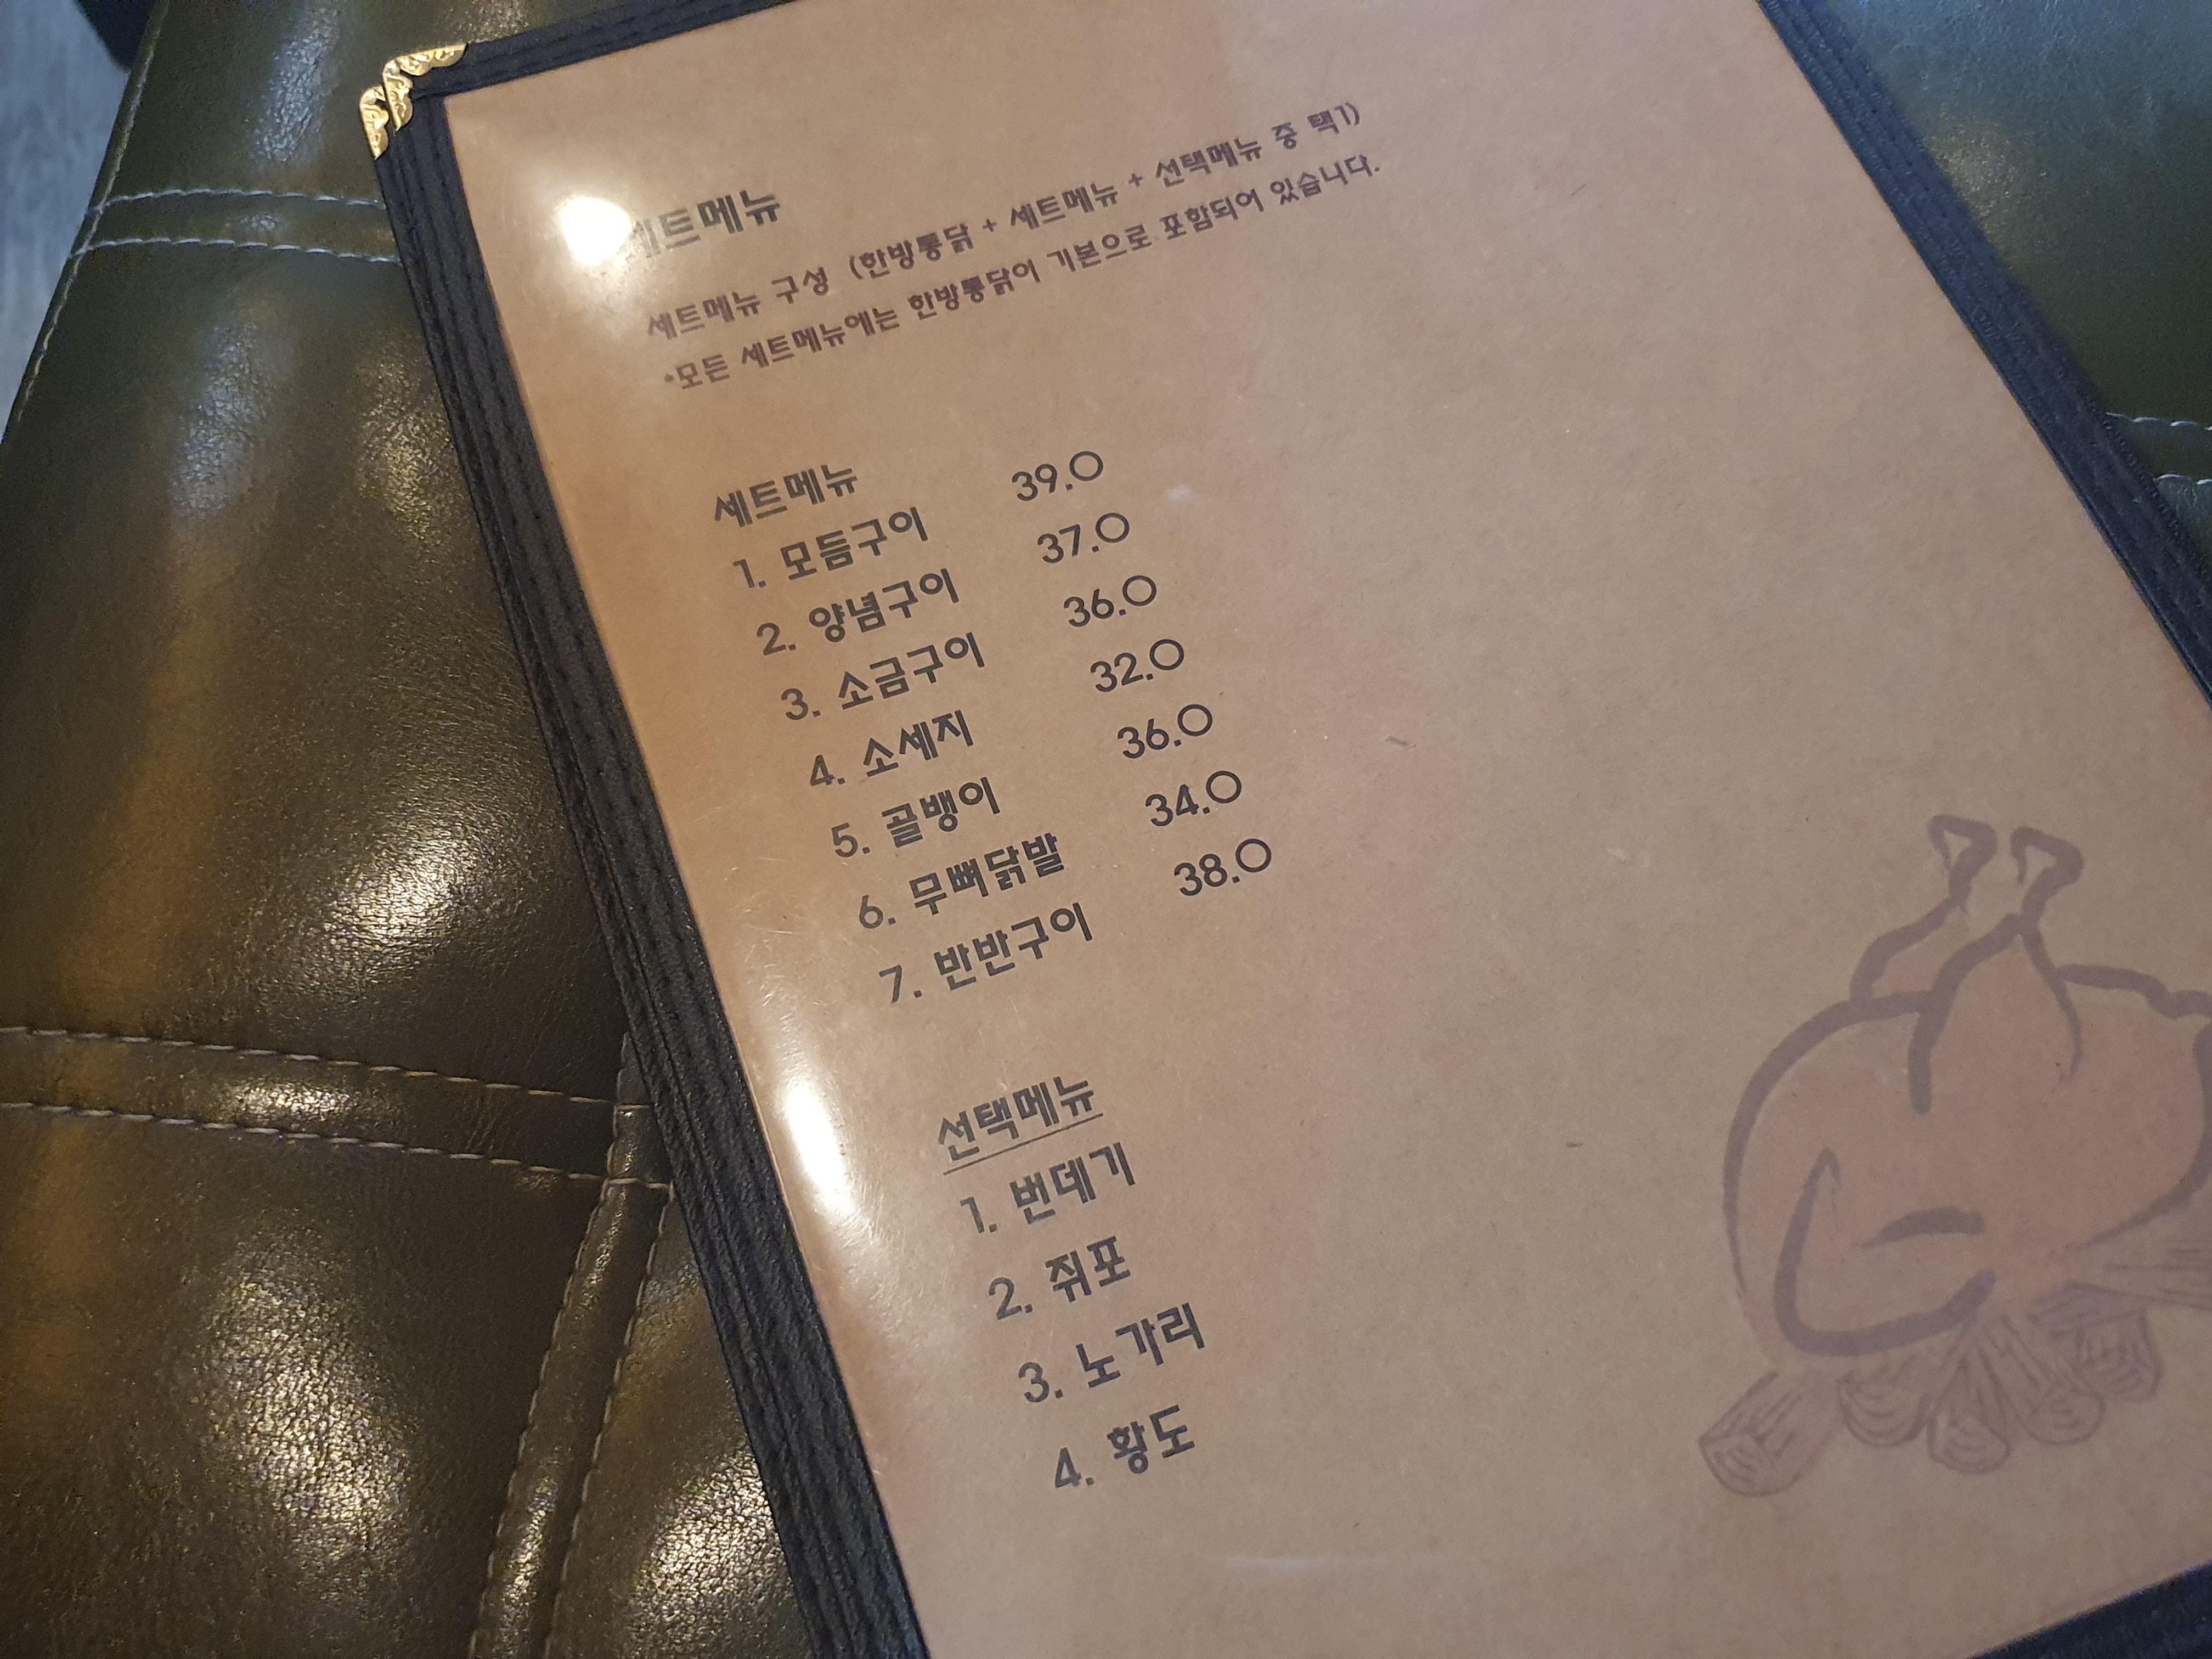 세트메뉴
세트메뉴 구성 (한방통닭 + 세트메뉴 + 선택메뉴 중 택1)
*모든 세트메뉴에는 한방통닭이 기본으로 포함되어 있습니다.
세트메뉴
1. 모듬구이 39.0
2. 양념구이 37.0
3. 소금구이 36.0
4. 소세지 32.0
5. 골뱅이 36.0
6. 무뼈닭발 34.0
7. 반반구이 38.0
선택메뉴
1. 번데기
2. 쥐포
3. 노가리
4. 황도